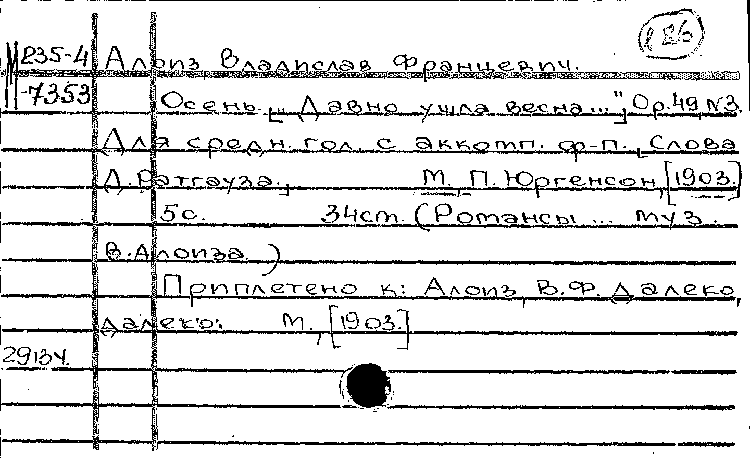 126
М 235-4 Алоиз Владислав Францевич.
-7353 Осень. [„Давно ушла весна..."], Op.49, N3.
Для средн. гол. с аккомп. ф-п. [Слова
Д. Ратгауза.] М., П. Юргенсон, [1903.]
5с. 34ст. (Романсы ... муз.
В. Алоиза)
Приплетено к: Алоиз, В.Ф. Далеко,
далеко. М., [1903.]